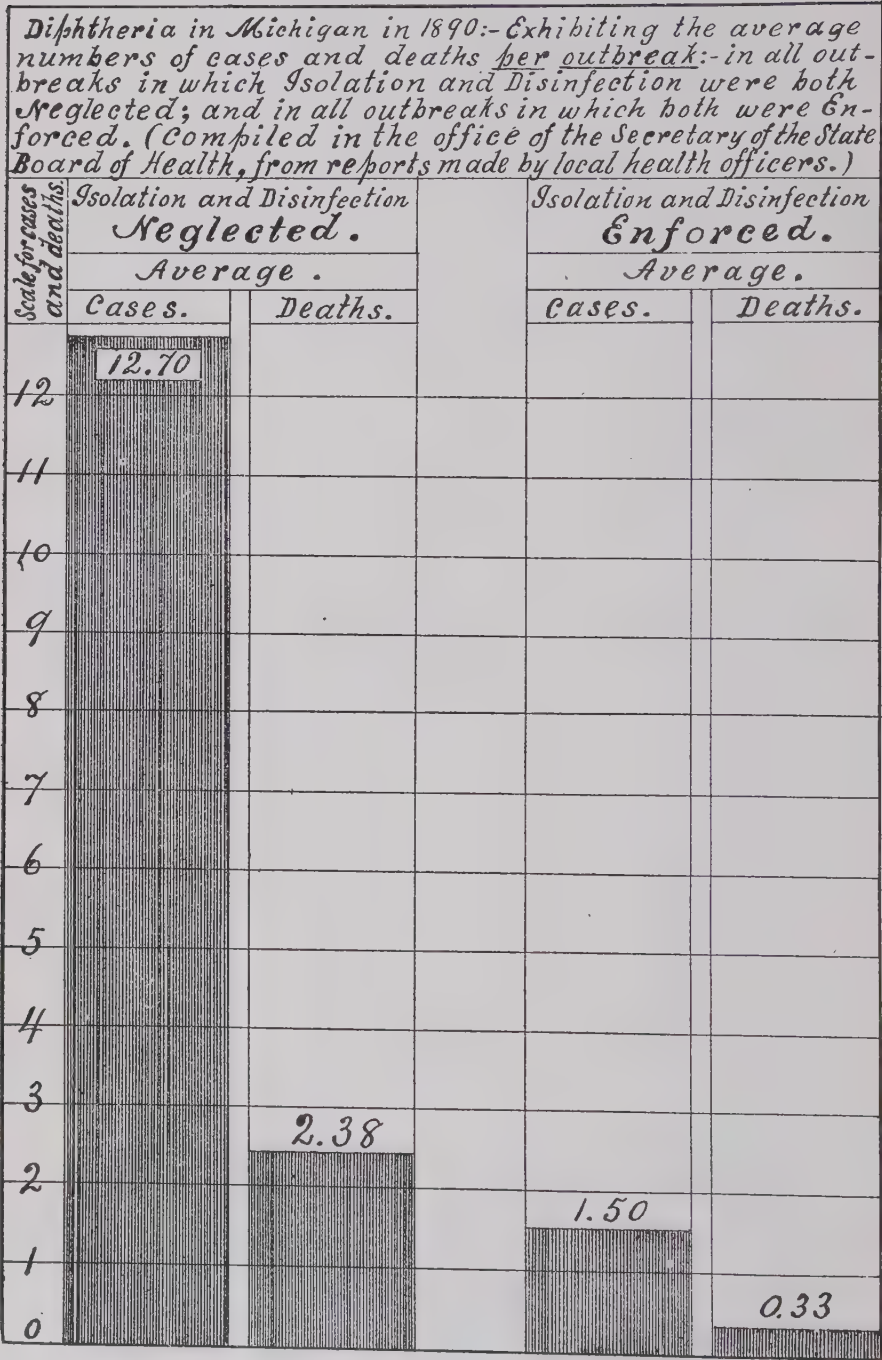 Diphtheria in Michigan in 1890:- Exhibiting the average
numbers of cases and deaths per outbreak:- in all out-
breaks in which Isolation and Disinfection were both
Neglected; and in all outbreaks in which both were En-
forced. (Compiled in the office of the Secretary of the State
Board of Health, from reports made by local health officers.)
Scale for cases
and deaths.
Isolation and Disinfection
Neglected.
Average.
Cases.
Deaths.
Isolation and Disinfection
Enforced.
Average.
Cases.
Deaths.
12.70
12
11
10
9
8
7
6
5
4
3
2.38
2
1.50
1
0.33
0